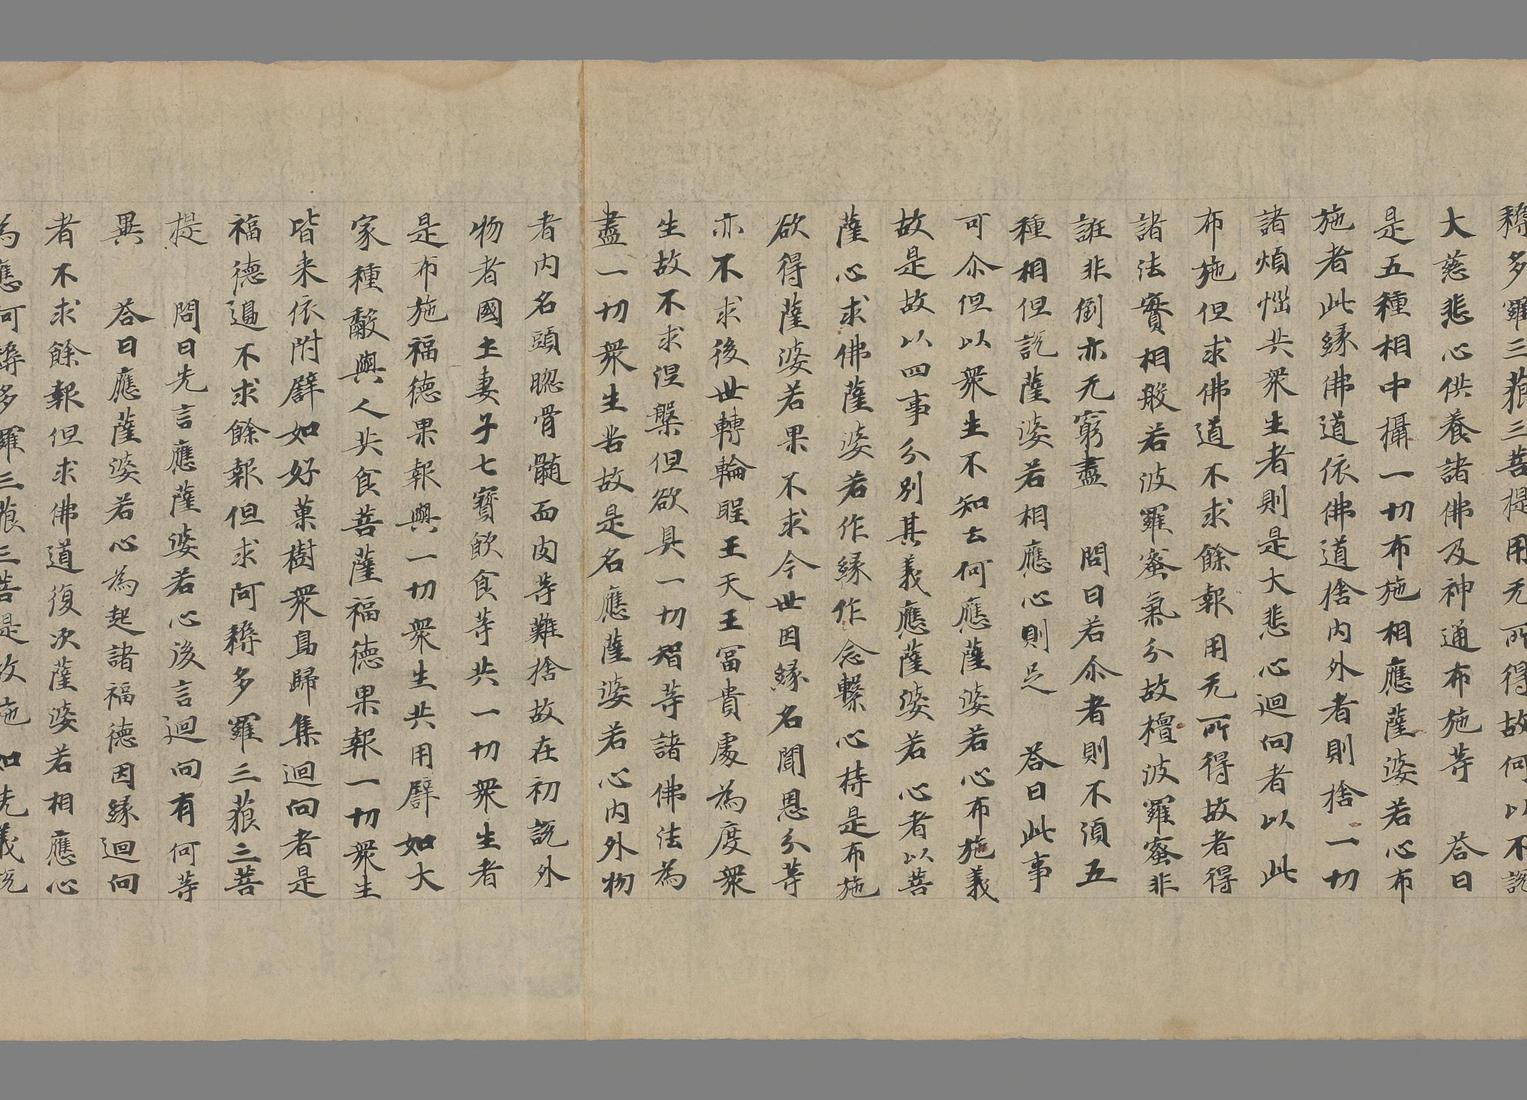 耨多羅三藐三菩提用无所得故何以不說
大慈悲心供養諸佛及神通布施等　荅曰
是五種相中攝一切布施相應薩婆若心布
施者此緣佛道依佛道捨內外者則捨一切
諸煩惱共衆生者則是大悲心迴向者以此
布施但求佛道不求餘報用无所得故者得
諸法實相般若波羅蜜氣分故檀波羅蜜非
誑非倒亦无窮盡　問曰若尒者則不須五
種相但說薩婆若相應心則足　荅曰此事
可尒但以衆生不知云何應薩婆若心布施義
故是故以四事分別其義應薩婆若心者以菩
薩心求佛薩婆若作緣作念繫心持是布施
欲得薩婆若果不求今世因緣名聞恩分等
亦不求後世轉輪聖王天王冨貴處為度衆
生故不求涅槃但欲具一切智等諸佛法為
盡一切衆生苦故是名應薩婆若心內外物
者內名頭𦛁骨髓面肉等難捨故在初說外
物者國土妻子七寶飲食等共一切衆生者
是布施福德果報與一切衆生共用譬如大
家種穀與人共食菩薩福德果報一切衆生
皆来依附譬如好菓樹衆鳥歸集迴向者是
福德邊不求餘報但求阿耨多羅三藐三菩
提　問曰先言應薩婆若心後言迴向有何等
異　荅曰應薩婆若心為起諸福德因緣迴向
者不求餘報但求佛道復次薩婆若相應心
為應阿耨多羅三藐三菩提故施如先義說